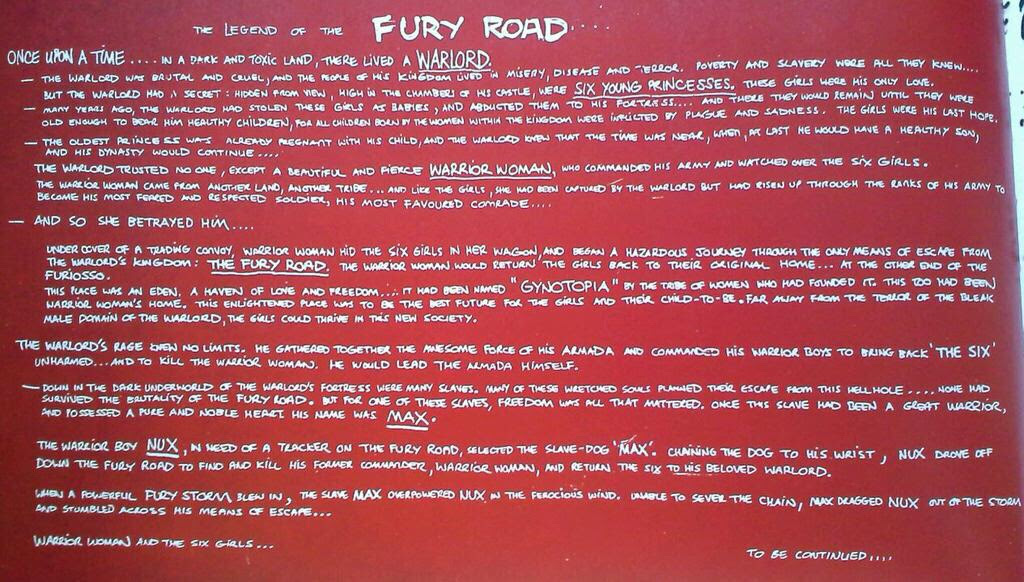 THE LEGEND OF THE FURY ROAD....
ONCE UPON A TIME .... IN A DARK AND TOXIC LAND, THERE LIVED A WARLORD.
— THE WARLORD WAS BRUTAL AND CRUEL, AND THE PEOPLE OF HIS KINGDOM LIVED IN MISERY, DISEASE AND TERROR. POVERTY AND SLAVERY WERE ALL THEY KNEW....
BUT THE WARLORD HAD A SECRET: HIDDEN FROM VIEW, HIGH IN THE CHAMBERS OF HIS CASTLE, WERE SIX YOUNG PRINCESSES. THESE GIRLS WERE HIS ONLY LOVE.
— MANY YEARS AGO, THE WARLORD HAD STOLEN THESE GIRLS AS BABIES, AND ABDUCTED THEM TO HIS FORTRESS.... AND THERE THEY WOULD REMAIN UNTIL THEY WERE
OLD ENOUGH TO BEAR HIM HEALTHY CHILDREN, FOR ALL CHILDREN BORN BY THE WOMEN WITHIN THE KINGDOM WERE INFLICTED BY PLAGUE AND SADNESS. THE GIRLS WERE HIS LAST HOPE.
— THE OLDEST PRINCESS WAS ALREADY PREGNANT WITH HIS CHILD, AND THE WARLORD KNEW THAT THE TIME WAS NEAR, WHEN, AT LAST HE WOULD HAVE A HEALTHY SON,
AND HIS DYNASTY WOULD CONTINUE....
THE WARLORD TRUSTED NO ONE, EXCEPT A BEAUTIFUL AND FIERCE WARRIOR WOMAN, WHO COMMANDED HIS ARMY AND WATCHED OVER THE SIX GIRLS.
THE WARRIOR WOMAN CAME FROM ANOTHER LAND, ANOTHER TRIBE... AND LIKE THE GIRLS, SHE HAD BEEN CAPTURED BY THE WARLORD BUT HAD RISEN UP THROUGH THE RANKS OF HIS ARMY TO
BECOME HIS MOST FEARED AND RESPECTED SOLDIER, HIS MOST FAVOURED COMRADE....
— AND SO SHE BETRAYED HIM....
UNDER COVER OF A TRADING CONVOY, WARRIOR WOMAN HID THE SIX GIRLS IN HER WAGON, AND BEGAN A HAZARDOUS JOURNEY THROUGH THE ONLY MEANS OF ESCAPE FROM
THE WARLORD'S KINGDOM: THE FURY ROAD. THE WARRIOR WOMAN WOULD RETURN THE GIRLS BACK TO THEIR ORIGINAL HOME... AT THE OTHER END OF THE
FURIOSSO.
THIS PLACE WAS AN EDEN. A HAVEN OF LOVE AND FREEDOM.... IT HAD BEEN NAMED "GYNOTOPIA" BY THE TRIBE OF WOMEN WHO HAD FOUNDED IT. THIS TOO HAD BEEN
WARRIOR WOMAN'S HOME. THIS ENLIGHTENED PLACE WAS TO BE THE BEST FUTURE FOR THE GIRLS AND THEIR CHILD-TO-BE. FAR AWAY FROM THE TERROR OF THE BLEAK
MALE DOMAIN OF THE WARLORD, THE GIRLS COULD THRIVE IN THIS NEW SOCIETY.
THE WARLORD'S RAGE KNEW NO LIMITS. HE GATHERED TOGETHER THE AWESOME FORCE OF HIS ARMADA AND COMMANDED HIS WARRIOR BOYS TO BRING BACK 'THE SIX'
UNHARMED...AND TO KILL THE WARRIOR WOMAN. HE WOULD LEAD THE ARMADA HIMSELF.
— DOWN IN THE DARK UNDERWORLD OF THE WARLORD'S FORTRESS WERE MANY SLAVES. MANY OF THESE WRETCHED SOULS PLANNED THEIR ESCAPE FROM THIS HELLHOLE ..... NONE HAD
SURVIVED THE BRUTALITY OF THE FURY ROAD. BUT FOR ONE OF THESE SLAVES, FREEDOM WAS ALL THAT MATTERED. ONCE THIS SLAVE HAD BEEN A GREAT WARRIOR,
AND POSSESSED A PURE AND NOBLE HEART. HIS NAME WAS MAX.
THE WARRIOR BOY NUX, IN NEED OF A TRACKER ON THE FURY ROAD, SELECTED THE SLAVE-DOG 'MAX'. CHAINING THE DOG TO HIS WRIST, NUX DROVE OFF
DOWN THE FURY ROAD TO FIND AND KILL HIS FORMER COMMANDER, WARRIOR WOMAN, AND RETURN THE SIX TO HIS BELOVED WARLORD.
WHEN A POWERFUL FURY STORM BLEW IN, THE SLAVE MAX OVERPOWERED NUX IN THE FEROCIOUS WIND. UNABLE TO SEVER THE CHAIN, MAX DRAGGED NUX OUT OF THE STORM
AND STUMBLED ACROSS HIS MEANS OF ESCAPE...
WARRIOR WOMAN AND THE SIX GIRLS...
TO BE CONTINUED....